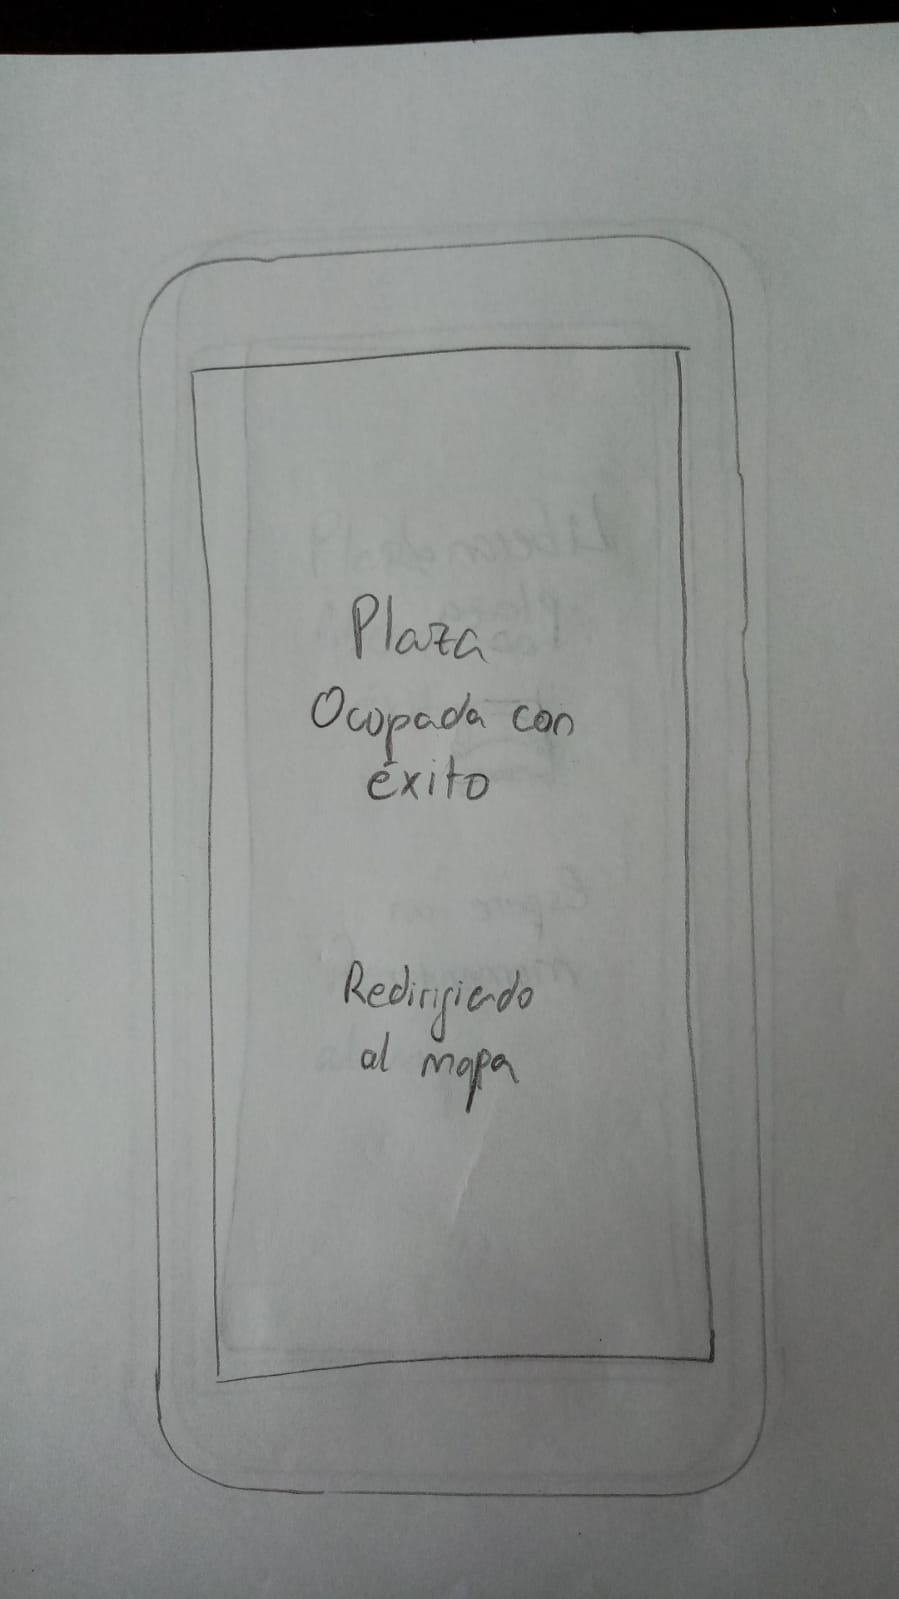 Plaza
Ocupada con
éxito
Redirigiendo
al mapa